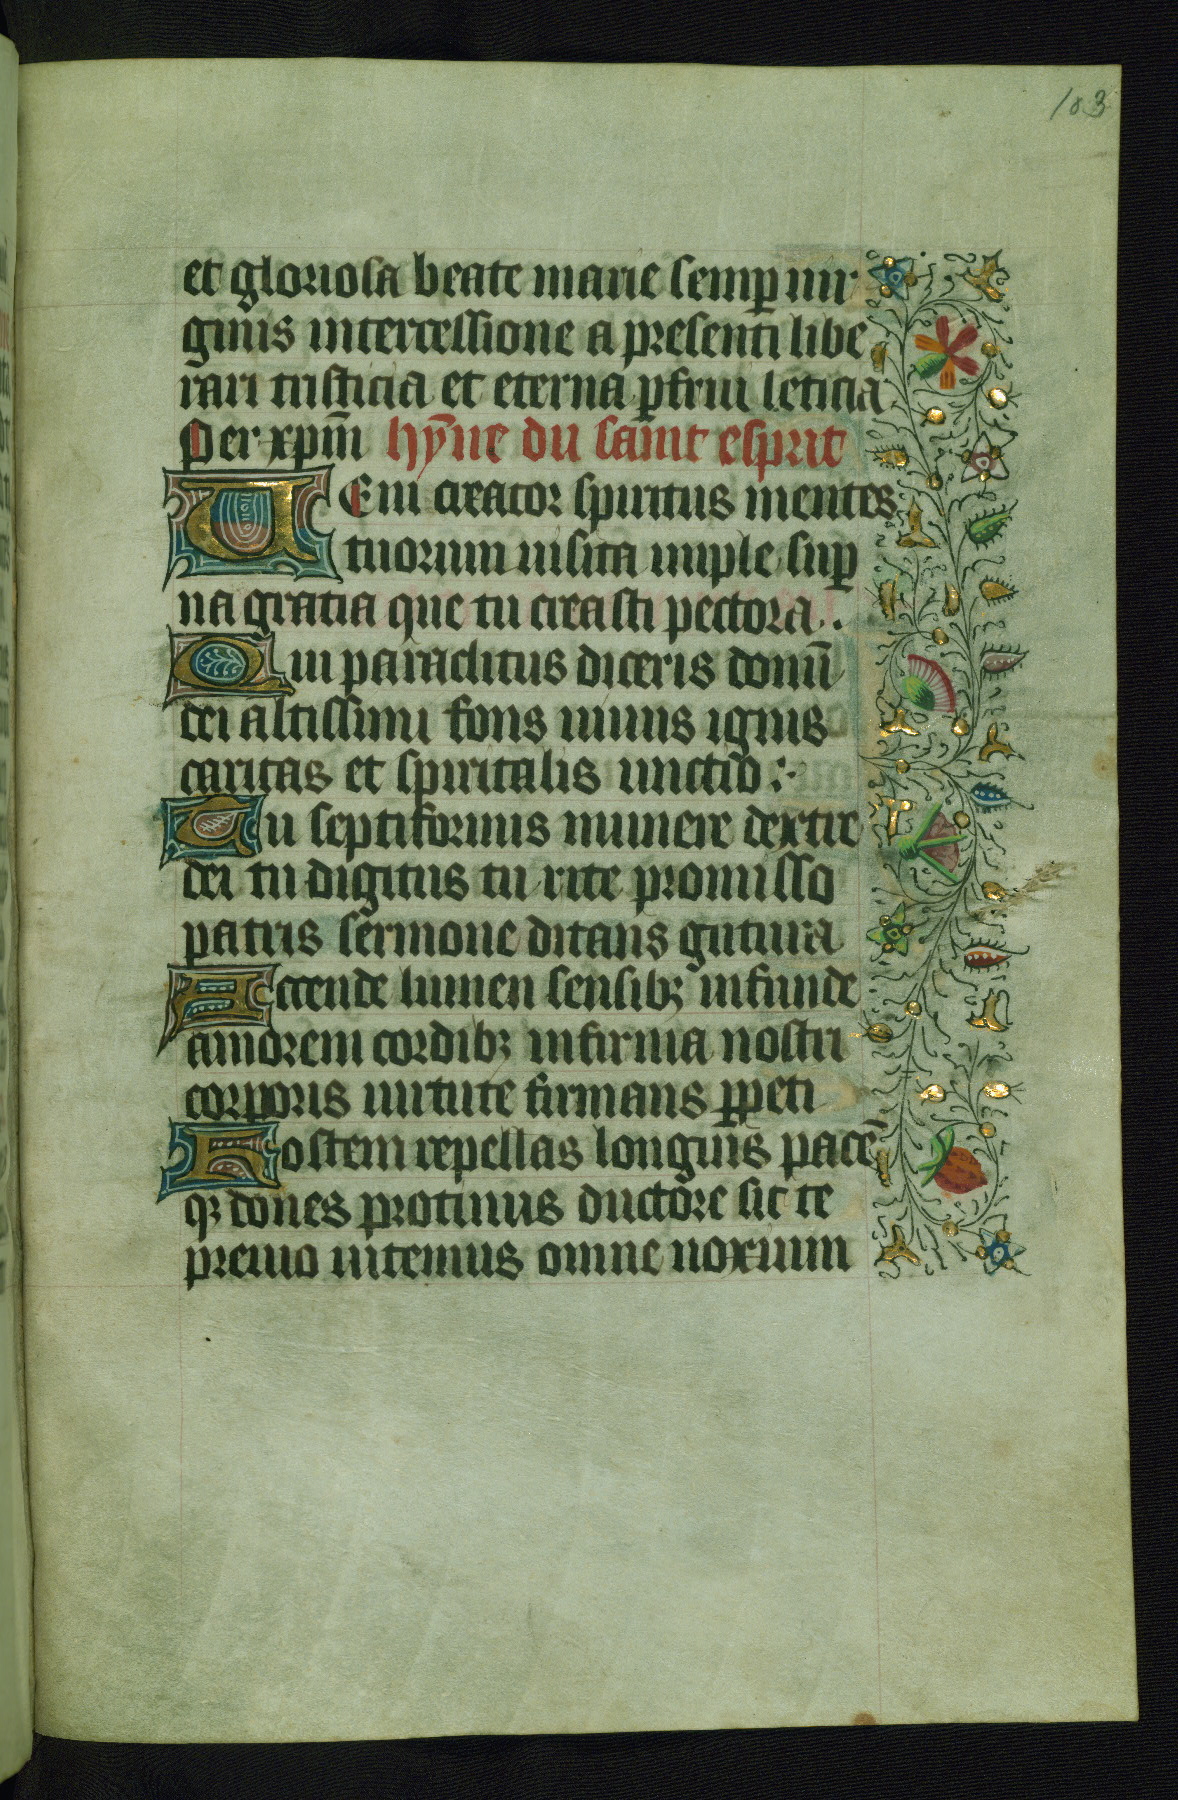 183
et gloriosa beate marie semp̲ uir
ginis intercessione a presenti libe
rari tristicia et eterna p̲frui leticia
Per xp̄m hȳne du saint esprit
UEni creator spiritus mentes
tuorum uisita imple sup̲
na gratia que tu creasti pectora.
Qui paraclitus diceris donū
dei altissimi fons uiuus ignis
caritas et spiritalis unctio :·
Tu septiformis munere dextre
dei tu digitus tu rite promisso
patris sermone ditans gutura
Accende lumen sensibꝫ infunde
amorem cordibꝫ infirma nostri
corporis uirtute firmans p̲peti
Hostem repellas longius pacē
qꝫ dones protinus ductore sic te
preuio uitemus omne noxium